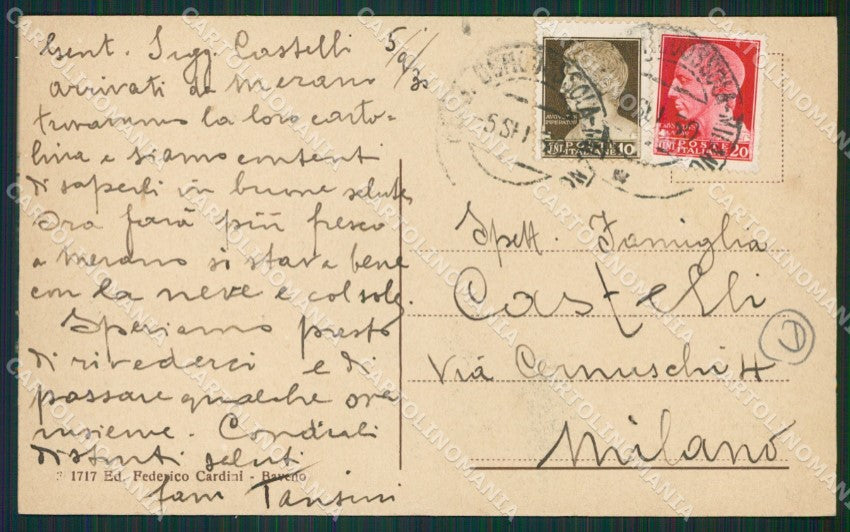 Gent. Sigg. Castelli 5/9/30
arrivati da Merano
trovammo la loro carto-
lina e siamo contenti
di saperli in buone salute
Ora farà più fresco
a Merano si stava bene
con la neve e col sole.
Speriamo presto
di rivederci e di
passare qualche ora
insieme. Cordiali
distinti saluti
fam Tansini
1717 Ed. Federico Cardini - Baveno
POSTE
ITALIANE
CENT. 10
POSTE
ITALIANE
CENT. 20
5 SET
MILANO
Spett. Famiglia
Castelli
Via Cernuschi 4
Milano
CARTOLINOMANIA